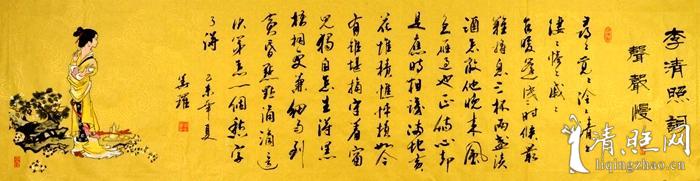 李清照詞
聲聲慢
尋々覓々冷々清々
凄々慘々戚々
乍暖還寒時候最
難將息三杯兩盞淡
酒怎敵他晚來風
急雁過也正傷心卻
是舊時相識滿地黃
花堆積憔悴損如今
有誰堪摘守着窗
兒獨自怎生得黑
梧桐更兼細雨到
黃昏點點滴滴這
次第怎一個愁字
了得
乙未年夏
清旺网
liqingzhao.com